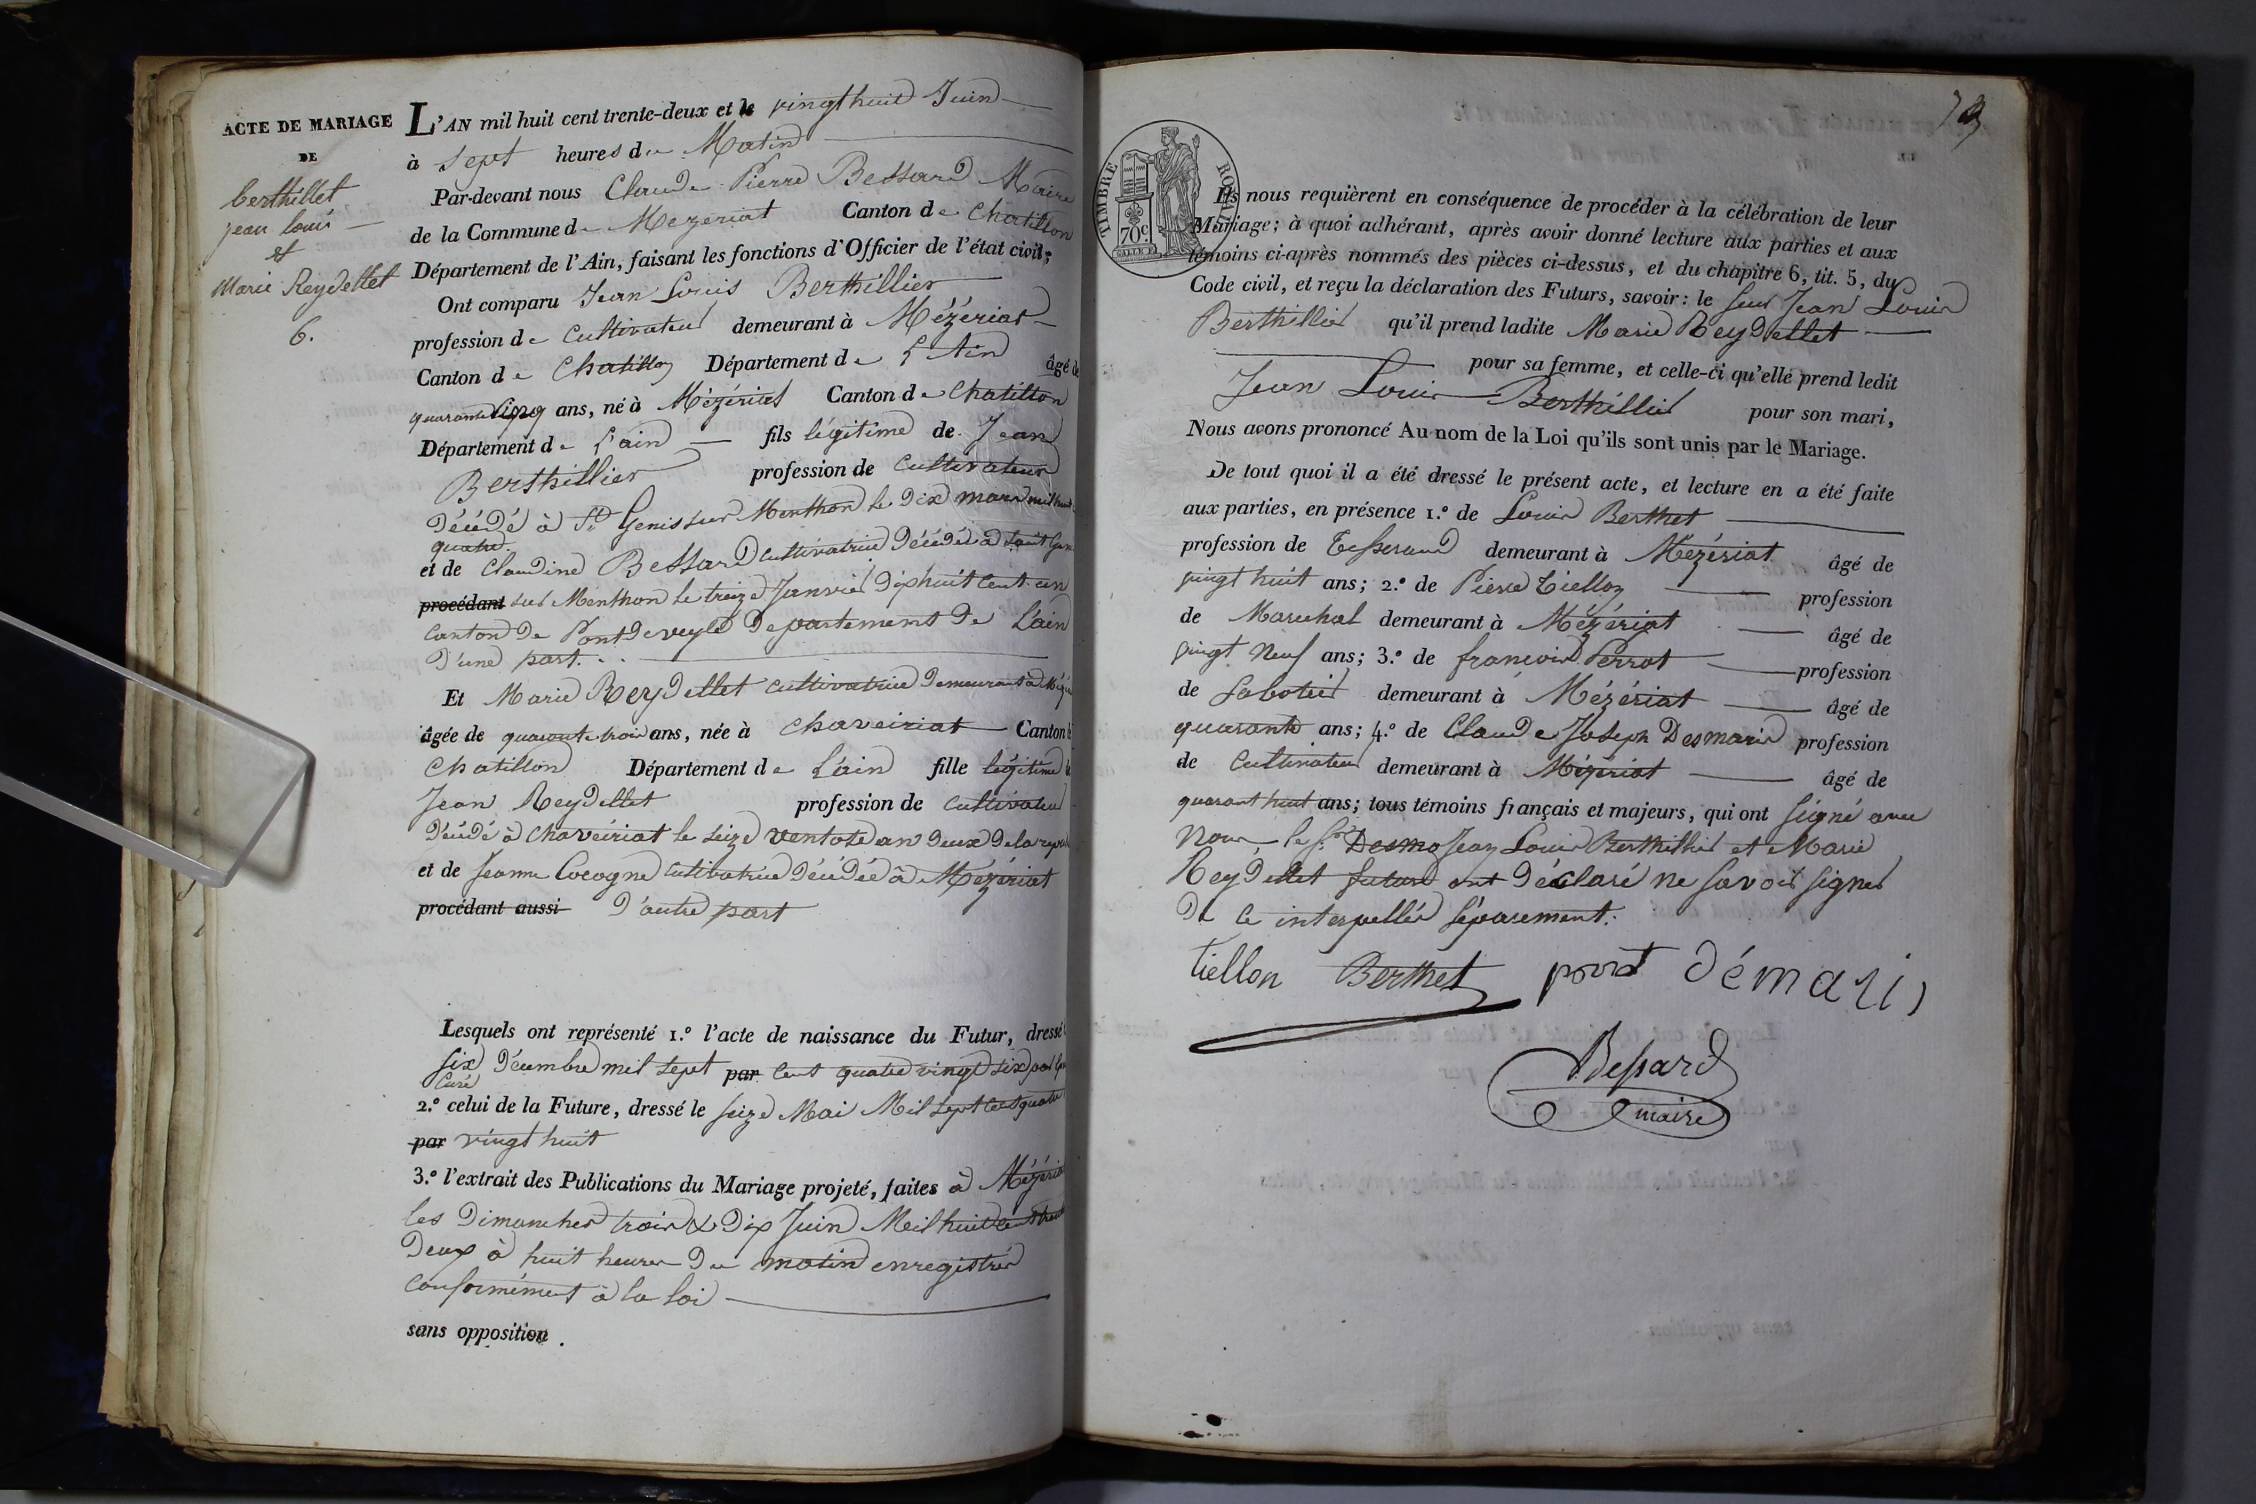 ACTE DE MARIAGE
DE
berthillet
jean loui
et
Marie Reydellet
6.
L'AN mil huit cent trente-deux et le vingt huit Juin
à sept heures du Matin
Par-devant nous Claude Pierre Bessard Maire
de la Commune de Mezeriat Canton de Chatillon
Département de l'Ain, faisant les fonctions d'Officier de l'état civil;
Ont comparu Jean Louis Berthillier
profession de Cultivateur demeurant à Mézériat
Canton de Chatillon Département de L'Ain âgé de
quarante cinq ans, né à Mézériat Canton de Chatillon
Département de L'ain fils légitime de Jean
Berthillier profession de Cultivateur
décédé à St Genis sur Menthon le dix mars mil huit
quatre
et de Claudine Bessard cultivatrice décédée à Saint Genis
procédant sur Menthon le treize Janvier dix huit cent un
Canton de Pontdeveyle département de L'ain
d'une part.
Et Marie Reydellet cultivatrice demeurant à Mézé
âgée de quarante trois ans, née à Chaveiriat Canton de
Chatillon Département de L'ain fille légitime de
Jean Reydellet profession de Cultivateur
décédé à Chaveiriat le seize ventose an deux de la repu
et de Jeanne Cocogne Cultivatrice décédée à Mézériat
procédant aussi d'autre part
Lesquels ont représenté 1.º l'acte de naissance du Futur, dressé
six décembre mil sept par cent quatre vingt six par
Curé
2.º celui de la Future, dressé le seize Mai Mil sept cent quatre
par vingt huit
3.º l'extrait des Publications du Mariage projeté, faites à Mézéria
les dimanches trois & dix Juin Mil huit cent trente
deux à huit heures du matin enregistrés
conformément à la loi
sans opposition.
79
TIMBRE ROYAL
70 c.
Ils nous requièrent en conséquence de procéder à la célébration de leur
Mariage; à quoi adhérant, après avoir donné lecture aux parties et aux
témoins ci-après nommés des pièces ci-dessus, et du chapitre 6, tit. 5, du
Code civil, et reçu la déclaration des Futurs, savoir: le sieur Jean Louis
Berthillier qu'il prend ladite Marie Reydellet
pour sa femme, et celle-ci qu'elle prend ledit
Jean Louis Berthillier pour son mari,
Nous avons prononcé Au nom de la Loi qu'ils sont unis par le Mariage.
De tout quoi il a été dressé le présent acte, et lecture en a été faite
aux parties, en présence 1.º de Louis Berthet
profession de Tesserand demeurant à Mézériat âgé de
vingt huit ans; 2.º de Pierre Tiellon profession
de Marechal demeurant à Mézériat âgé de
vingt Neuf ans; 3.º de francois Perrot profession
de Sabotier demeurant à Mézériat âgé de
quarante ans; 4.º de Claude Joseph Desmaris profession
de Cultivateur demeurant à Mézériat âgé de
quarant huit ans; tous témoins français et majeurs, qui ont signé avec
Nous, les Desmo Jean Louis Berthillier et Marie
Reydellet future ont déclaré ne savoir signer
de ce interpellés séparement.
tiellon Berthet perrot démaris
Bessard
maire